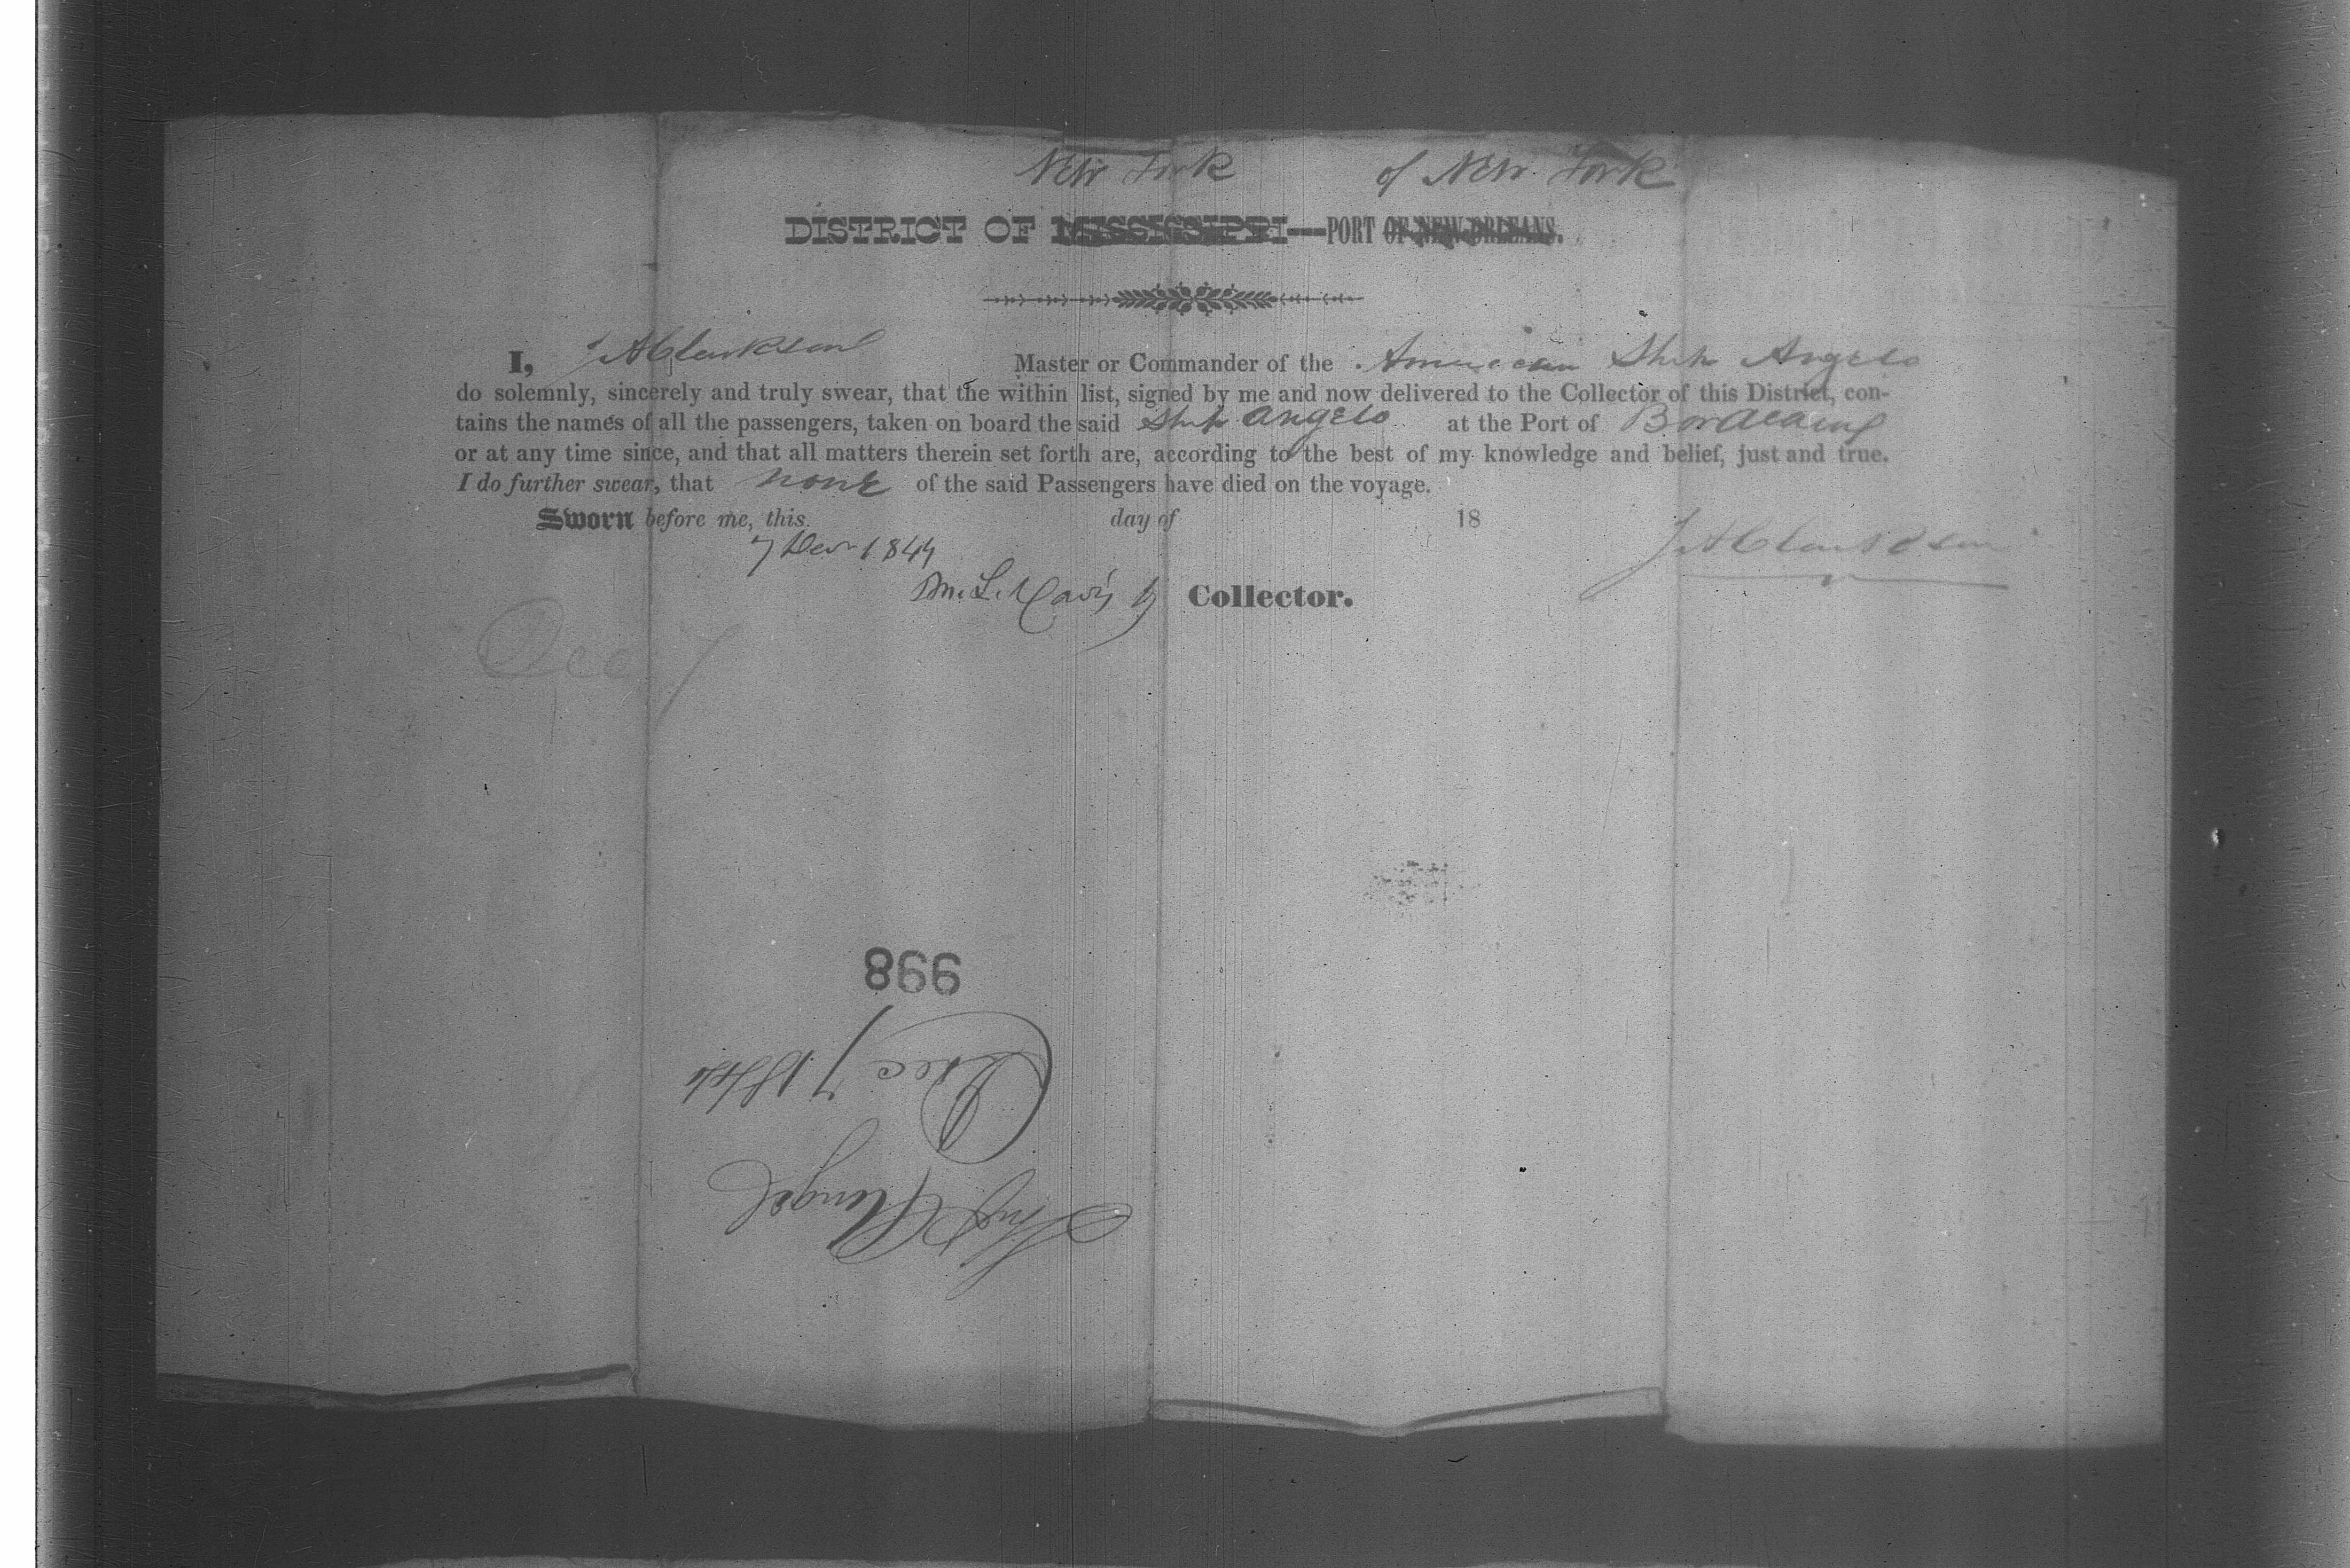 New York of New York
DISTRICT OF MISSISSIPPI—PORT OF NEW-ORLEANS.
I, J A Clarkson Master or Commander of the American Ship Angelo
do solemnly, sincerely and truly swear, that the within list, signed by me and now delivered to the Collector of this District, con-
tains the names of all the passengers, taken on board the said Ship Angelo at the Port of Bordeaux
or at any time since, and that all matters therein set forth are, according to the best of my knowledge and belief, just and true.
I do further swear, that none of the said Passengers have died on the voyage.
Sworn before me, this day of 18
7 Dec 1844
J A Clarkson
M. L. Davis Collector.
Dec 7
998
Dec 7 1844
Ship Angelo